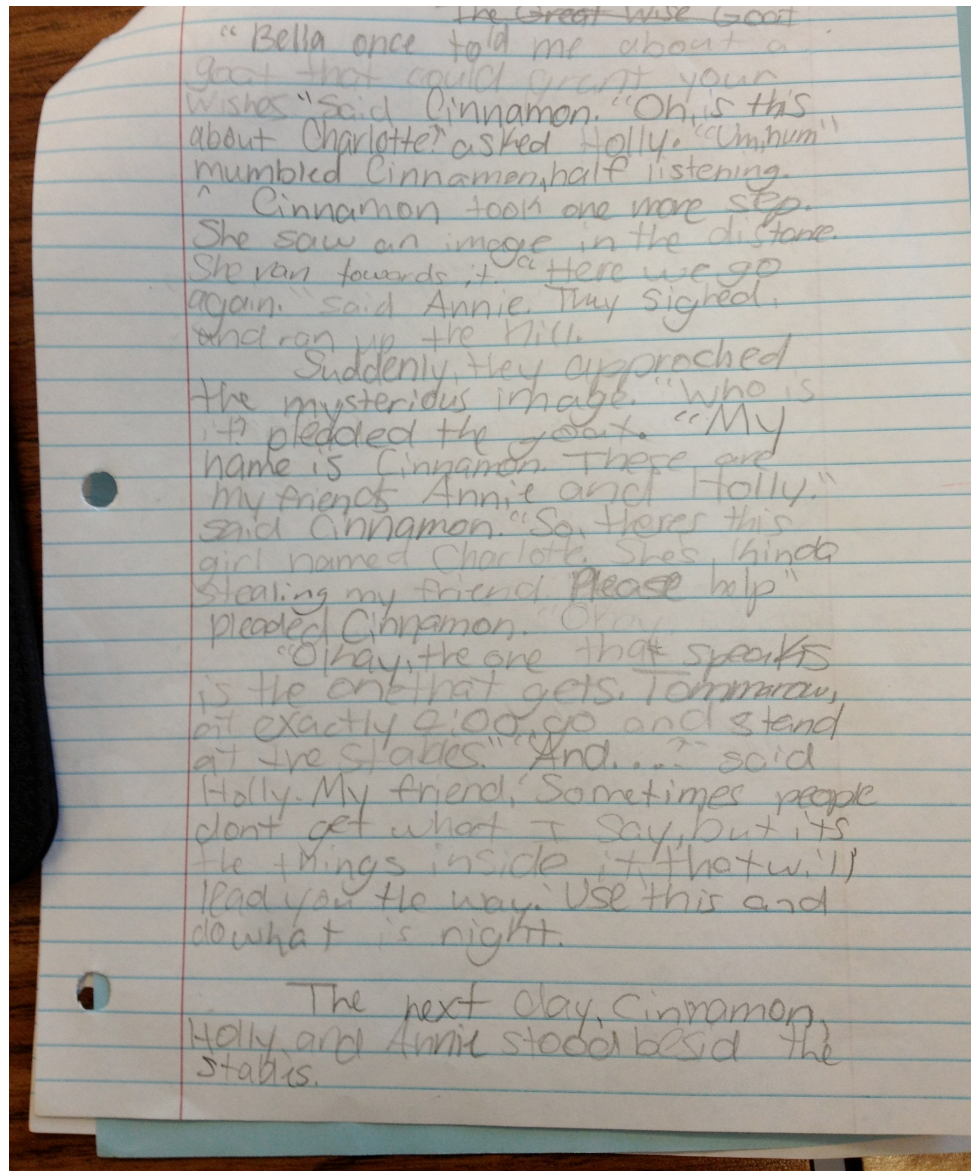 The Great Wise Goat
"Bella once told me about a
goat that could grant your
wishes" Said Cinnamon. "Oh, is this
about Charlotte?" asked Holly. "Um, hum"
mumbled Cinnamon, half listening.
^ Cinnamon took one more step.
She saw an image in the distance.
She ran towards it. "Here we go
again." said Annie. They sighed,
and ran up the hill.
Suddenly, they approched
the mysterious image. "Who is
it?" pleaded the goat. "My
name is Cinnamon. These are
my friends Annie and Holly."
said Cinnamon. "So, theres this
girl named Charlotte. She's kinda
stealing my friend. Please help"
pleaded Cinnamon. "Okay
"Okay, the one that speaks
is the one that gets. Tommarow,
at exactly 2:00, go and stand
at the stables." "And...." said
Holly. My friend, "Sometimes people
dont get what I say, but its
the things inside it, that will
lead you the way. Use this and
do what is night.
The next day, Cinnamon,
Holly and Annie stood besid the
stables.